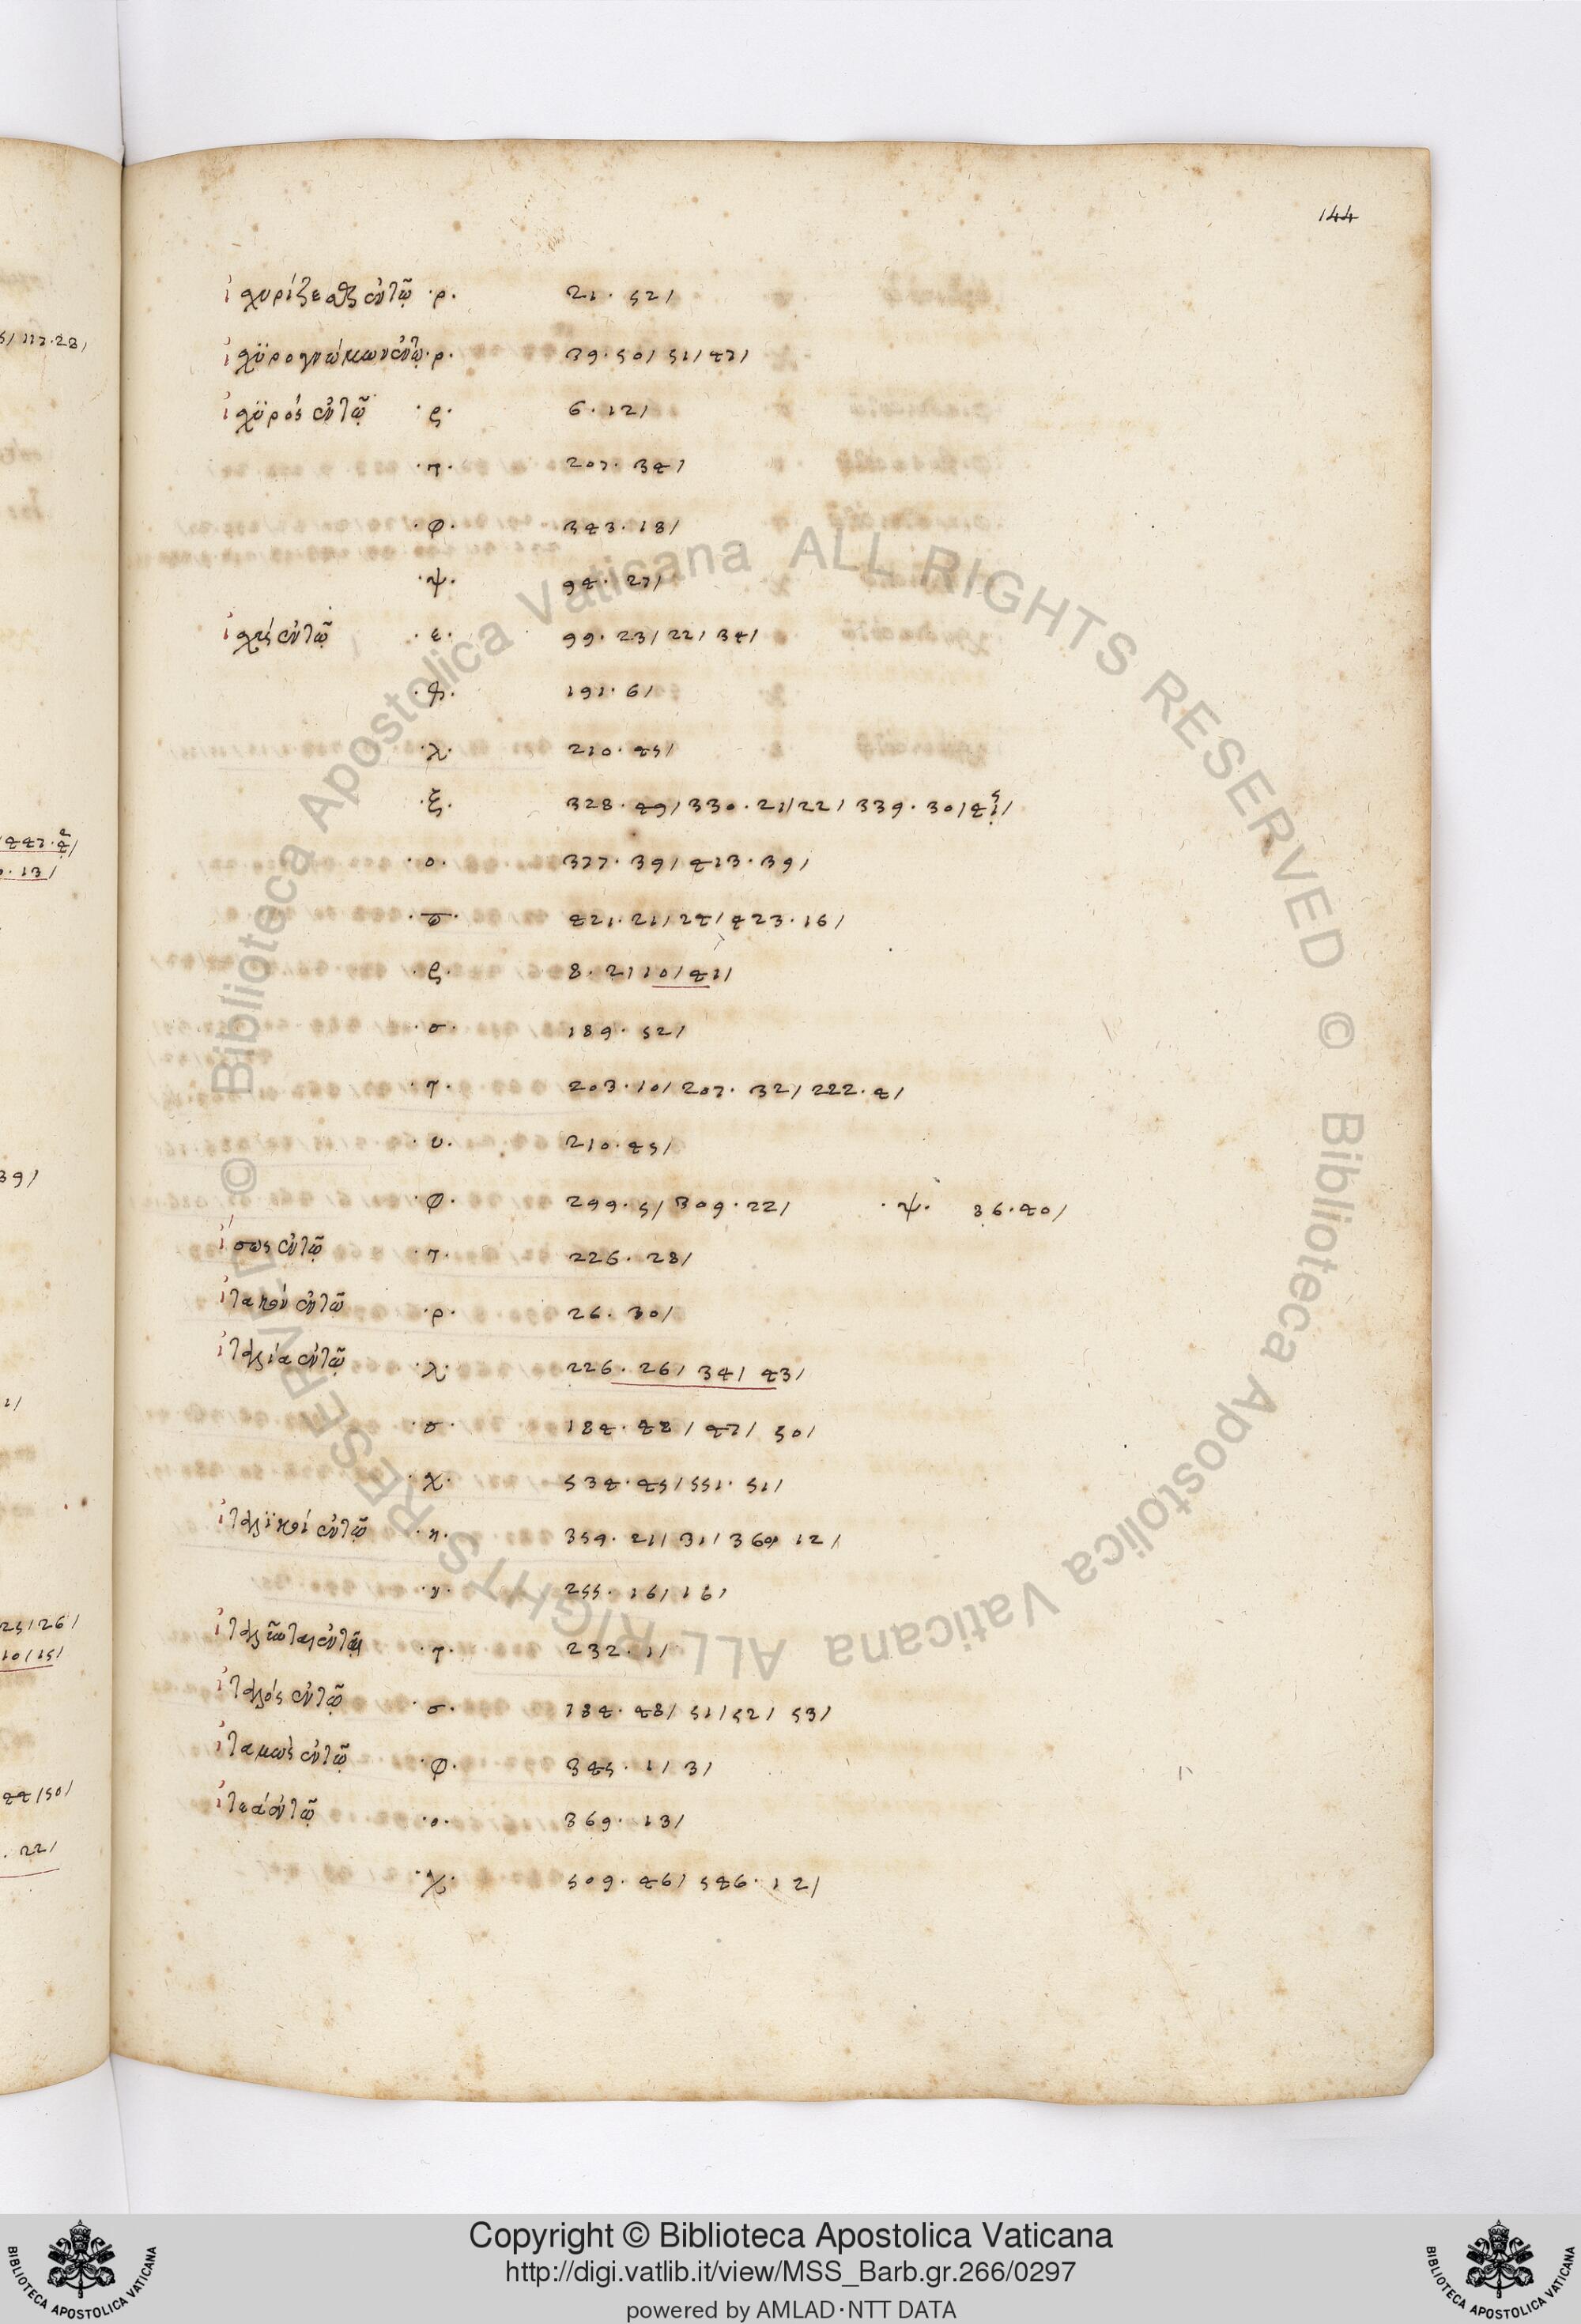 144
ἰσχυρίζεσθαι ἐν τῷ ·ρ· 21 · 52/
ἰσχϋρογνώμων ἐν τῷ ·ρ· 39 · 50/ 51/ 47/
ἰσχϋρός ἐν τῷ ·ρ· 6 · 12/
·τ· 207 · 34/
·φ· 343 · 18/
·ψ· 94 · 27/
ἐν τῷ ·ε· 99 · 23/ 22/ 34/
191 · 6/
·λ· 210 · 45/
·ξ· 328 · 49/ 330 · 21/ 22/ 339 · 30/
·ο· 377 · 39/ 413 · 39/
421 · 21/ 24/ 423 · 16/
·ρ· 8 · 2/ 10/ 41/
·σ· 189 · 52/
·τ· 203 · 10/ 207 · 32/ 222 · 4/
·υ· 210 · 45/
·φ· 299 · 5/ 309 · 22/ ·ψ· 36 · 40/
ἴσως ἐν τῷ ·τ· 226 · 28/
ἐν τῷ ·ρ· 26 · 30/
ἰταλία ἐν τῷ ·λ· 226 · 26/ 34/ 43/
·σ· 184 · 48/ 47/ 50/
·χ· 534 · 45/ 551 · 51/
ἰταλϊκοί ἐν τῷ ·κ· 359 · 21/ 31/ 360 · 12/
·ν· 255 · 16/ 16/
ἰταλιῶται ἐν τῷ ·τ· 232 · 1/
ἰταλός ἐν τῷ ·σ· 184 · 48/ 51/ 52/ 53/
ἰταμῶς ἐν τῷ ·φ· 345 · 1/ 3/
ἰτέα ἐν τῷ ·ο· 369 · 13/
509 · 46/ 546 · 12/
© Biblioteca Apostolica Vaticana ALL RIGHTS RESERVED © Biblioteca Apostolica Vaticana ALL RIGHTS RESERVED
Copyright © Biblioteca Apostolica Vaticana
http://digi.vatlib.it/view/MSS_Barb.gr.266/0297
powered by AMLAD·NTT DATA
BIBLIOTECA APOSTOLICA VATICANA
BIBLIOTECA APOSTOLICA VATICANA